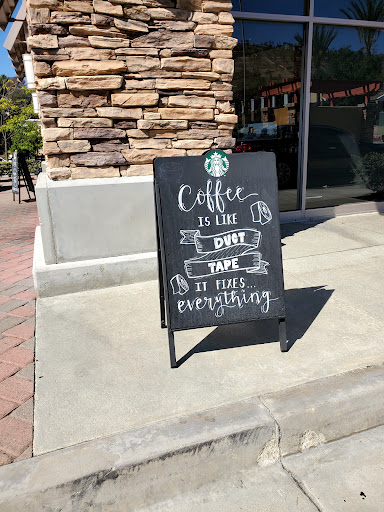 Coffee
IS LIKE
DUCT
TAPE
IT FIXES...
everything